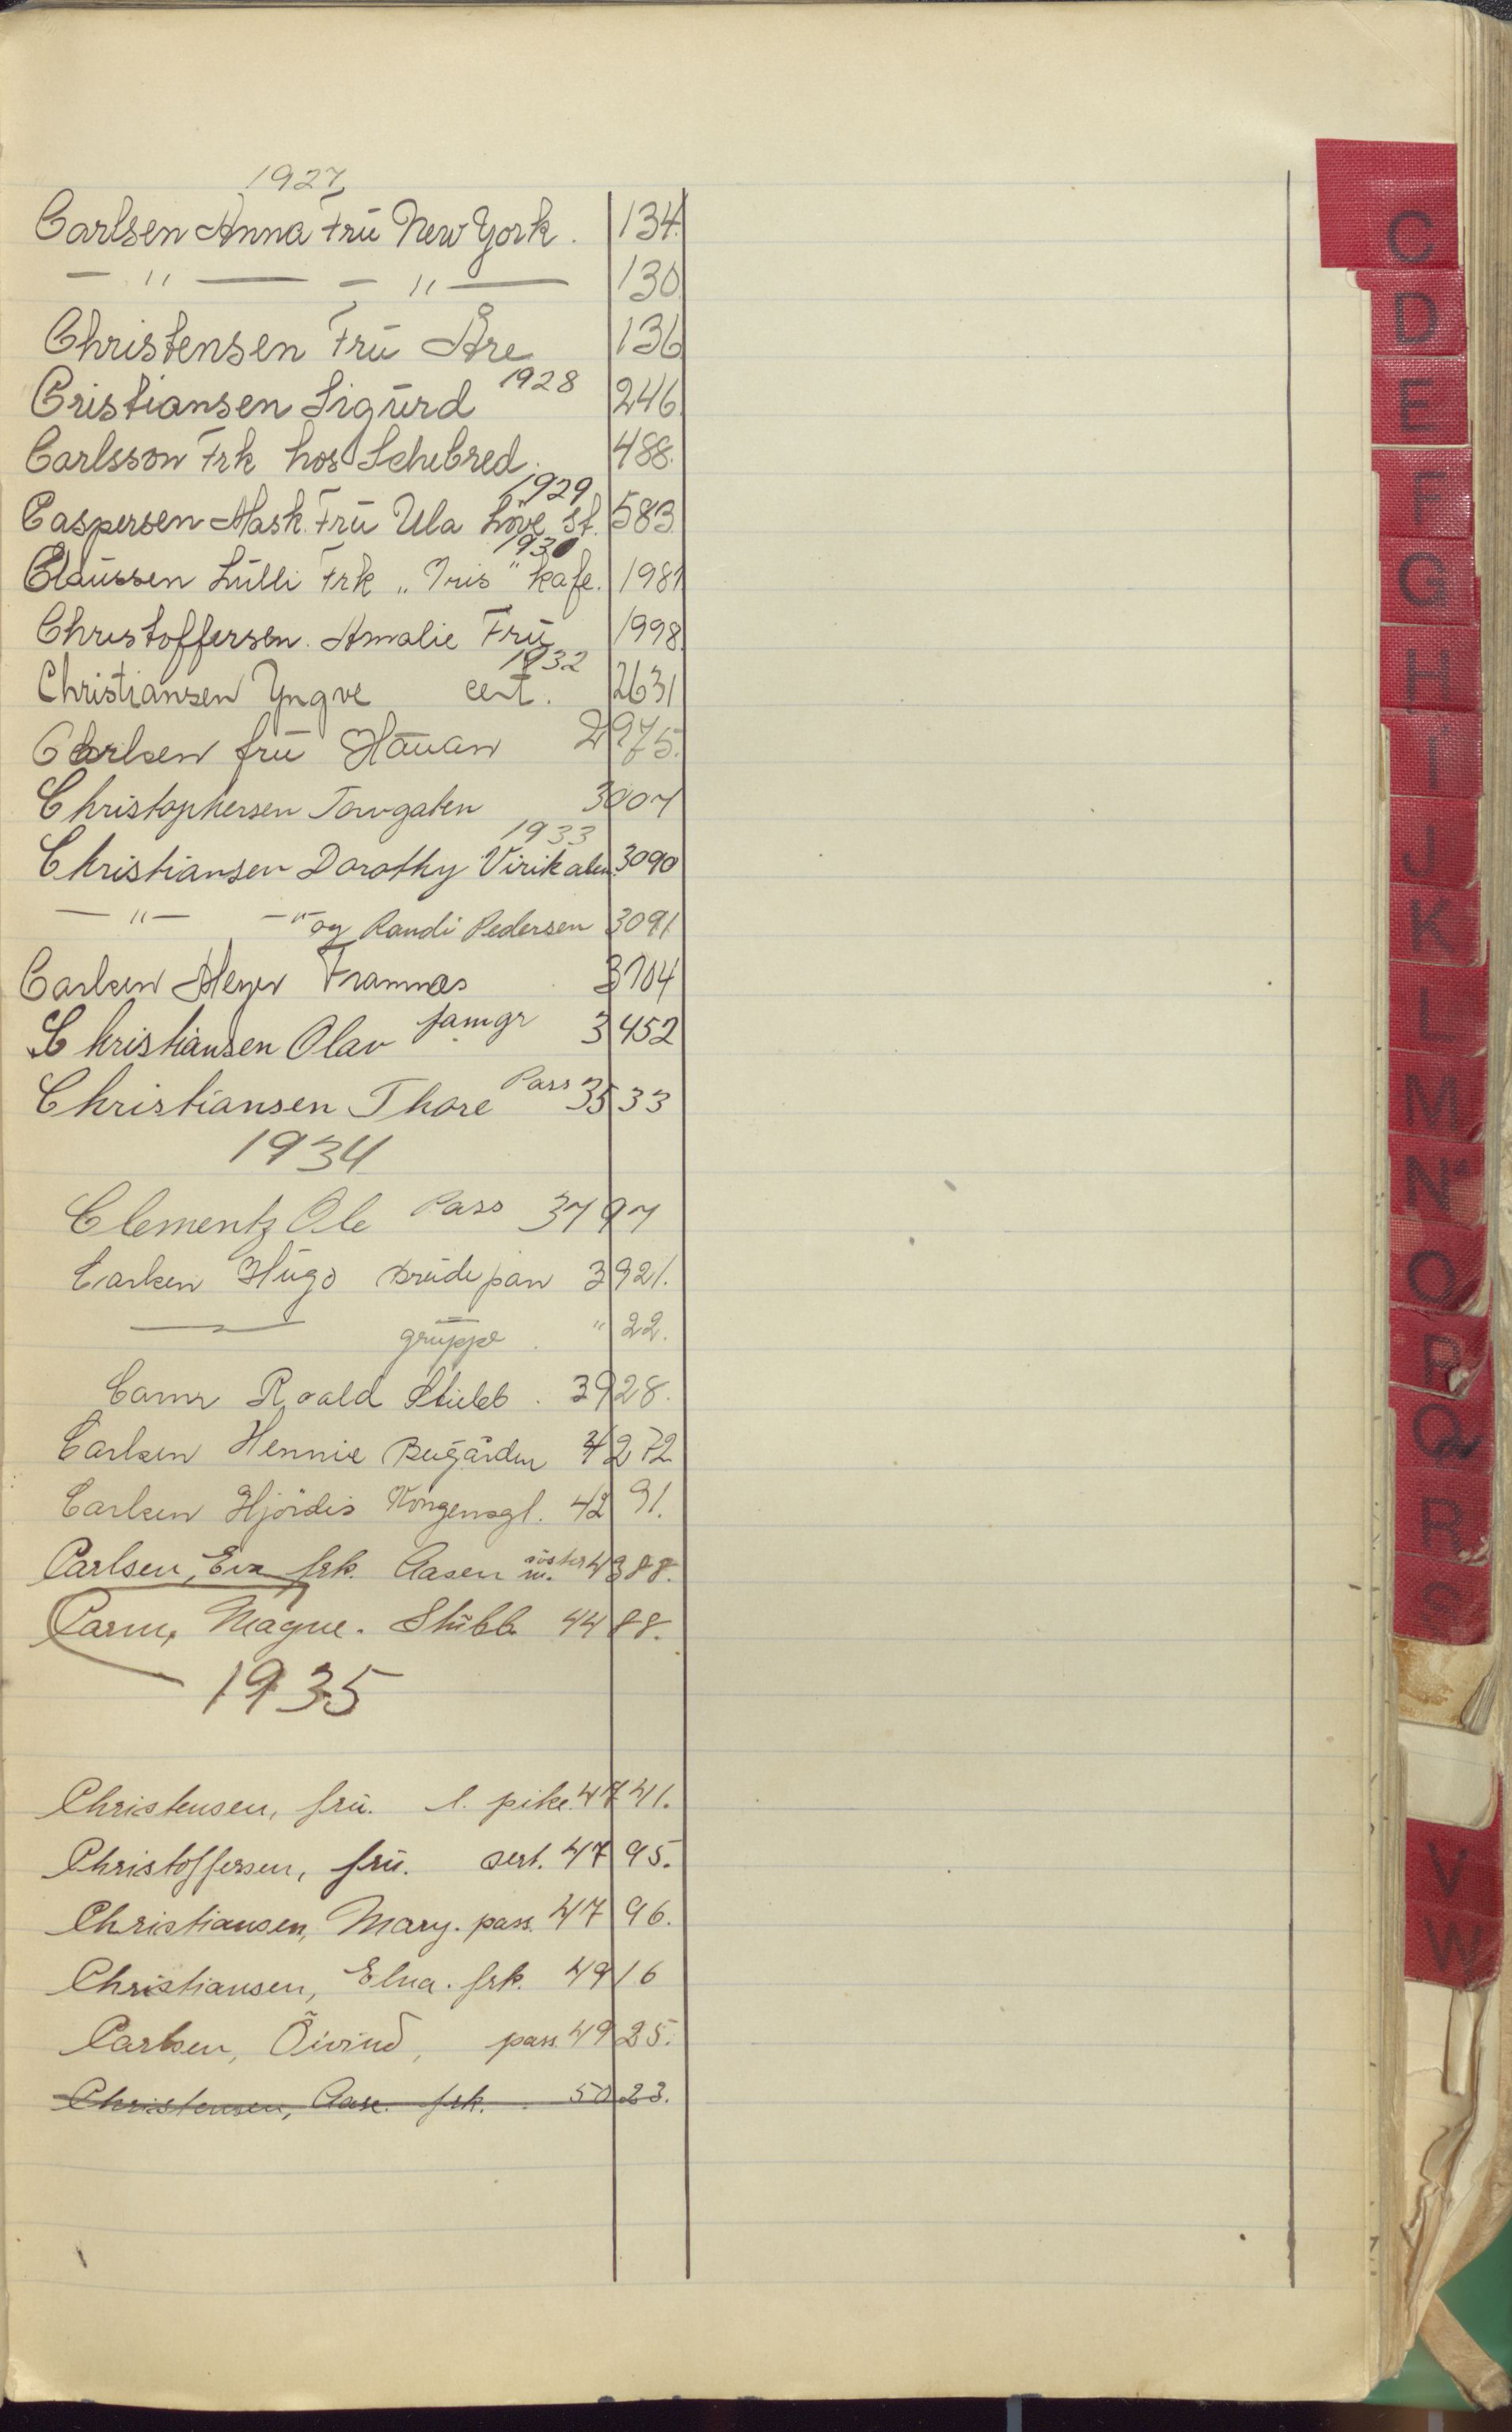 1927
Carlsen Anna Frū New York. 134.
— " — — " — 130
Christensen Frū Åre 136
1928
Cristiansen Sigūrd 246.
Carlsson Frk hos Schebred. 488.
1929
Caspersen Mask. Frū Ula höve st. 583
1930
Claūssen Lūlli Frk „Iris" kafe. 1981
Christoffersen. Amalie Frū 1998.
1932
Christiansen Yngve cert. 2631
Carlsen frū Haūan 2975.
Christophersen Torvgaten 3007
1933
Christiansen Dorothy Virikalen. 3090
— " — — " og Randi Pedersen 3091
Carlsen Meyer Framnæs 3704
Christiansen Olav famgr 3452
Christiansen Thore Pass 3533
1934
Clementz Ole Pass 3797
Carlsen Hūgo brūdepar 3921.
— grūppe. " 22.
Carm Roald Stūbb. 3928.
Carlsen Hennie 4272
Carlsen Hjördis Kongensgt. 4291.
Carlsen, Eva frk. Aasen m. söster 4388.
Carm, Magne. Stūbb. 4488.
1935
Christensen, frū. l. pike. 4741.
Christoffersen, frū. sert. 4795.
Christiansen, Mary. pass. 4796.
Christiansen, Elna. frk. 4916
Carlsen, Öivind, pass. 4925.
Christensen, Aase. frk. . 5023.
C
D
E
F
G
H
I
J
K
L
M
N
O
P
Q
R
S
V
W